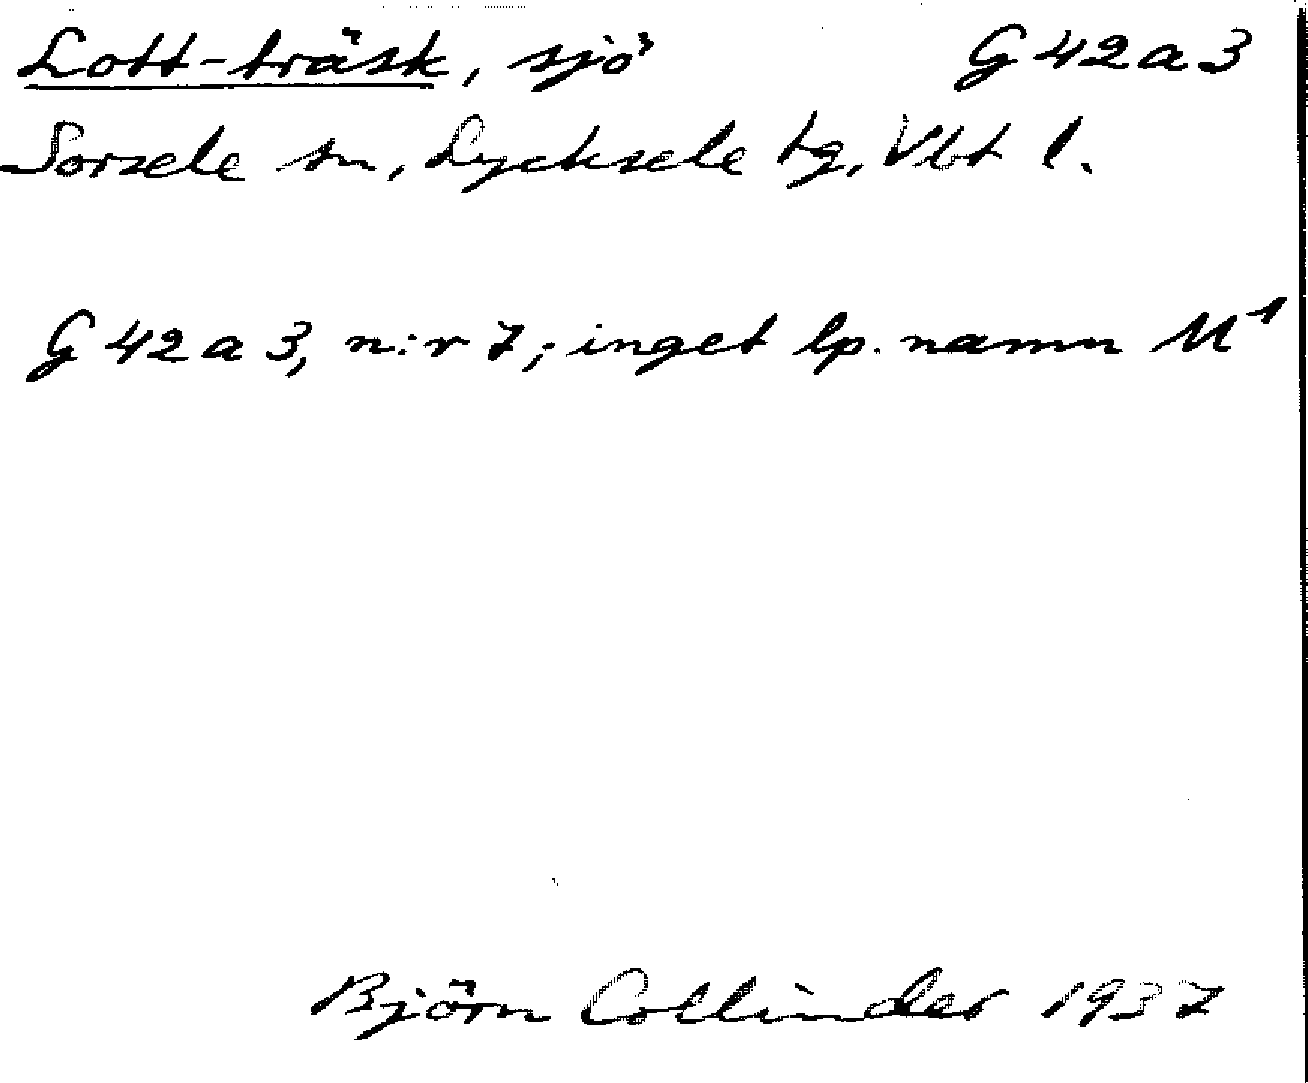 Lott-träsk, sjö G 42 a 3
Sorsele sn, Lycksele tg, Vbt l.
G 42 a 3, n:r 7; inget lp. namn M¹
Björn Collinder 1937